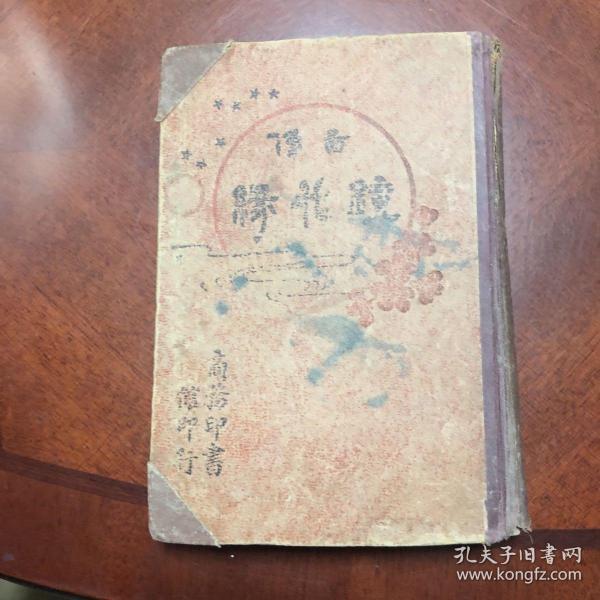 鏡花緣
商務印書
館印行
孔夫子旧書网
www.kongfz.com